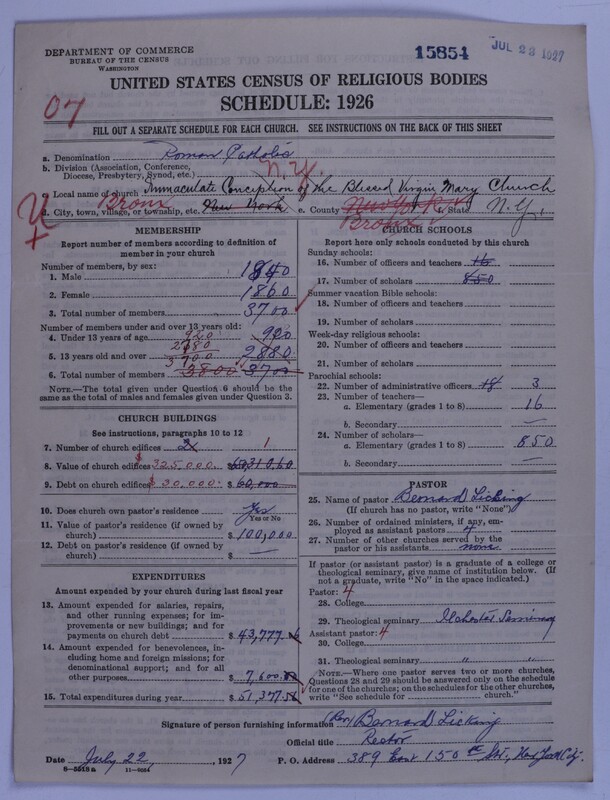 DEPARTMENT OF COMMERCE
BUREAU OF THE CENSUS
WASHINGTON
15854
JUL 23 1927
UNITED STATES CENSUS OF RELIGIOUS BODIES
SCHEDULE: 1926
07
FILL OUT A SEPARATE SCHEDULE FOR EACH CHURCH. SEE INSTRUCTIONS ON THE BACK OF THIS SHEET
a. Denomination Roman Catholic
b. Division (Association, Conference,
Diocese, Presbytery, Synod, etc.) N.Y.
c. Local name of church Immaculate Conception of the Blessed Virgin Mary Church
d. City, town, village, or township, etc. New York Bronx e. County Bronx f. State N.Y.
MEMBERSHIP
Report number of members according to definition of
member in your church
Number of members, by sex:
1. Male 1840
2. Female 1860
3. Total number of members 3700
Number of members under and over 13 years old:
4. Under 13 years of age 920 920
5. 13 years old and over 2880
6. Total number of members 3700 3800 3700
NOTE.—The total given under Question 6 should be the
same as the total of males and females given under Question 3.
CHURCH BUILDINGS
See instructions, paragraphs 10 to 12
7. Number of church edifices 2 1
8. Value of church edifices $325,000.
9. Debt on church edifices $30,000. $ 60,000
10. Does church own pastor's residence Yes
Yes or No
11. Value of pastor's residence (if owned by
church) $ 100,000
12. Debt on pastor's residence (if owned by
church) $ —
EXPENDITURES
Amount expended by your church during last fiscal year
13. Amount expended for salaries, repairs,
and other running expenses; for im-
provements or new buildings; and for
payments on church debt $ 43,777.
14. Amount expended for benevolences,
including home and foreign missions; for
denominational support; and for all
other purposes $ 7,600.
15. Total expenditures during year $ 51,377.
CHURCH SCHOOLS
Report here only schools conducted by this church
Sunday schools:
16. Number of officers and teachers 16
17. Number of scholars 850
Summer vacation Bible schools:
18. Number of officers and teachers
19. Number of scholars
Week-day religious schools:
20. Number of officers and teachers
21. Number of scholars
Parochial schools:
22. Number of administrative officers 18 3
23. Number of teachers—
a. Elementary (grades 1 to 8) 16
b. Secondary —
24. Number of scholars—
a. Elementary (grades 1 to 8) 850
b. Secondary —
PASTOR
25. Name of pastor Bernard Licking
(If church has no pastor, write "None")
26. Number of ordained ministers, if any, em-
ployed as assistant pastors 4
27. Number of other churches served by the
pastor or his assistants none
If pastor (or assistant pastor) is a graduate of a college or
theological seminary, give name of institution below. (If
not a graduate, write "No" in the space indicated.)
Pastor: 4
28. College
29. Theological seminary Ilchester Seminary
Assistant pastor: 4
30. College
31. Theological seminary " "
NOTE.—Where one pastor serves two or more churches,
Questions 28 and 29 should be answered only on the schedule
for one of the churches; on the schedules for the other churches,
write "See schedule for church."
Signature of person furnishing information (Rev) Bernard Licking
Official title Rector
Date July 22, 1927
P. O. Address 389 East 150th St., New York City.
8-5518a 11-8054